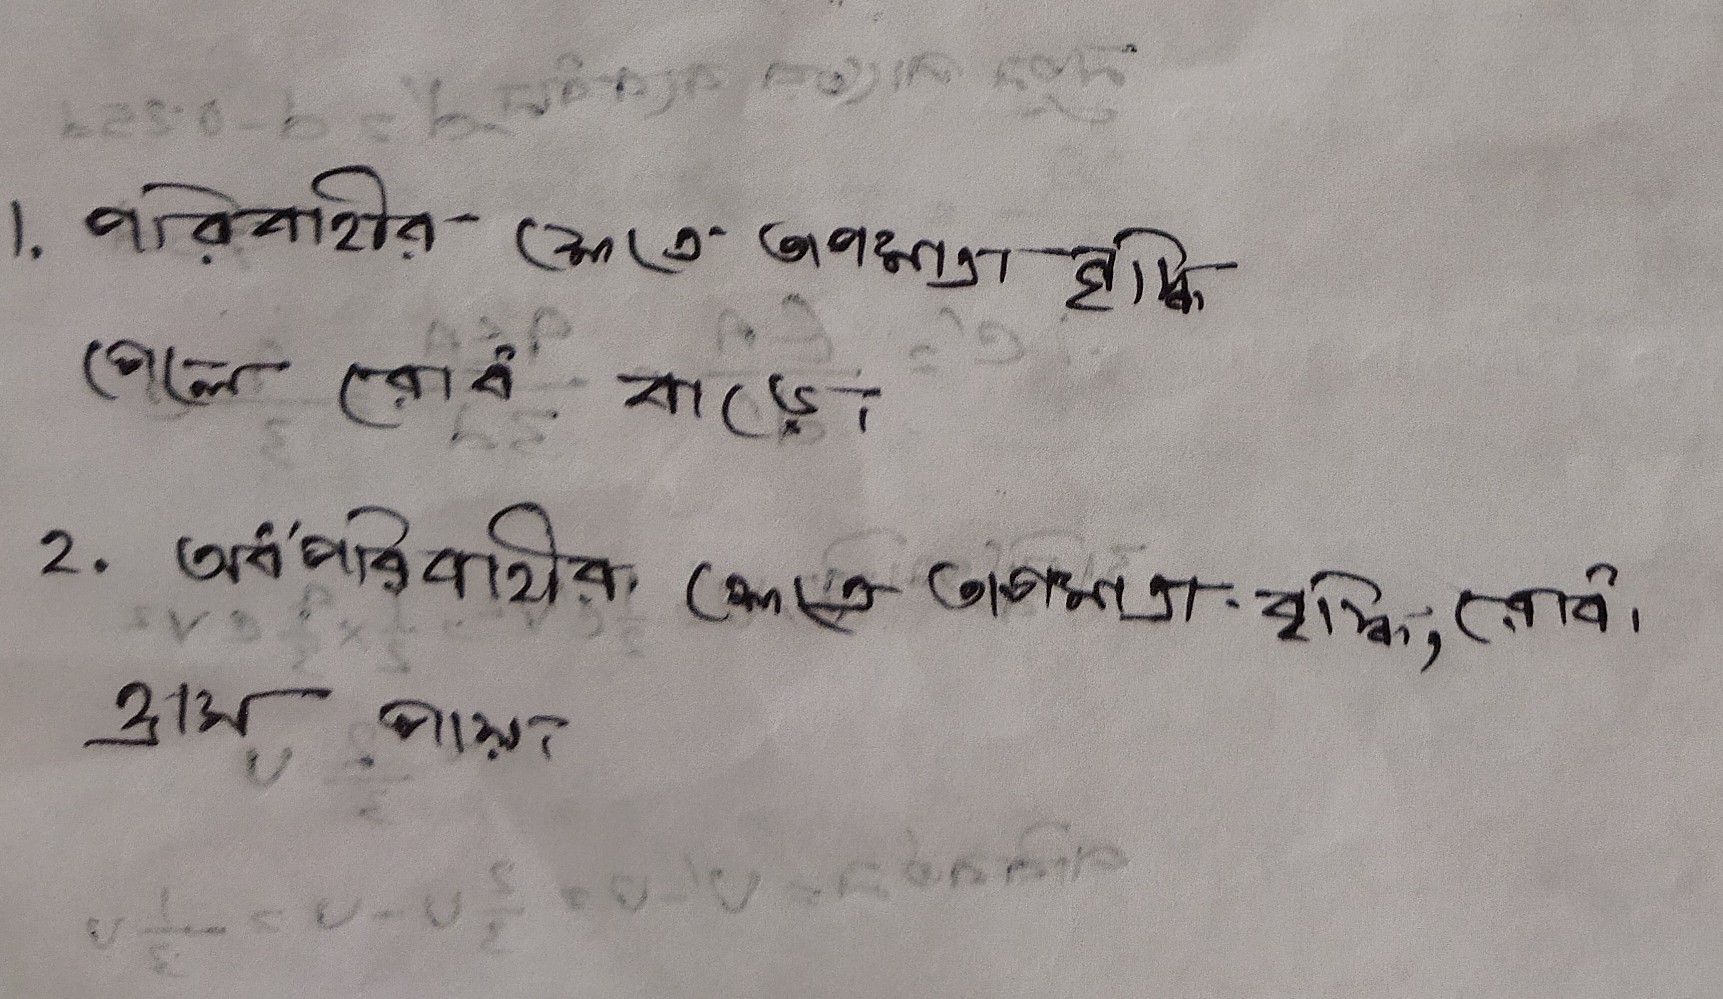 1. পরিবাহীর ক্ষেত্রে তাপমাত্রা বৃদ্ধি
পেলে রোধ বাড়ে।
2. অর্ধপরিবাহীর ক্ষেত্রে তাপমাত্রা বৃদ্ধি, রোধ
হ্রাস পায়।